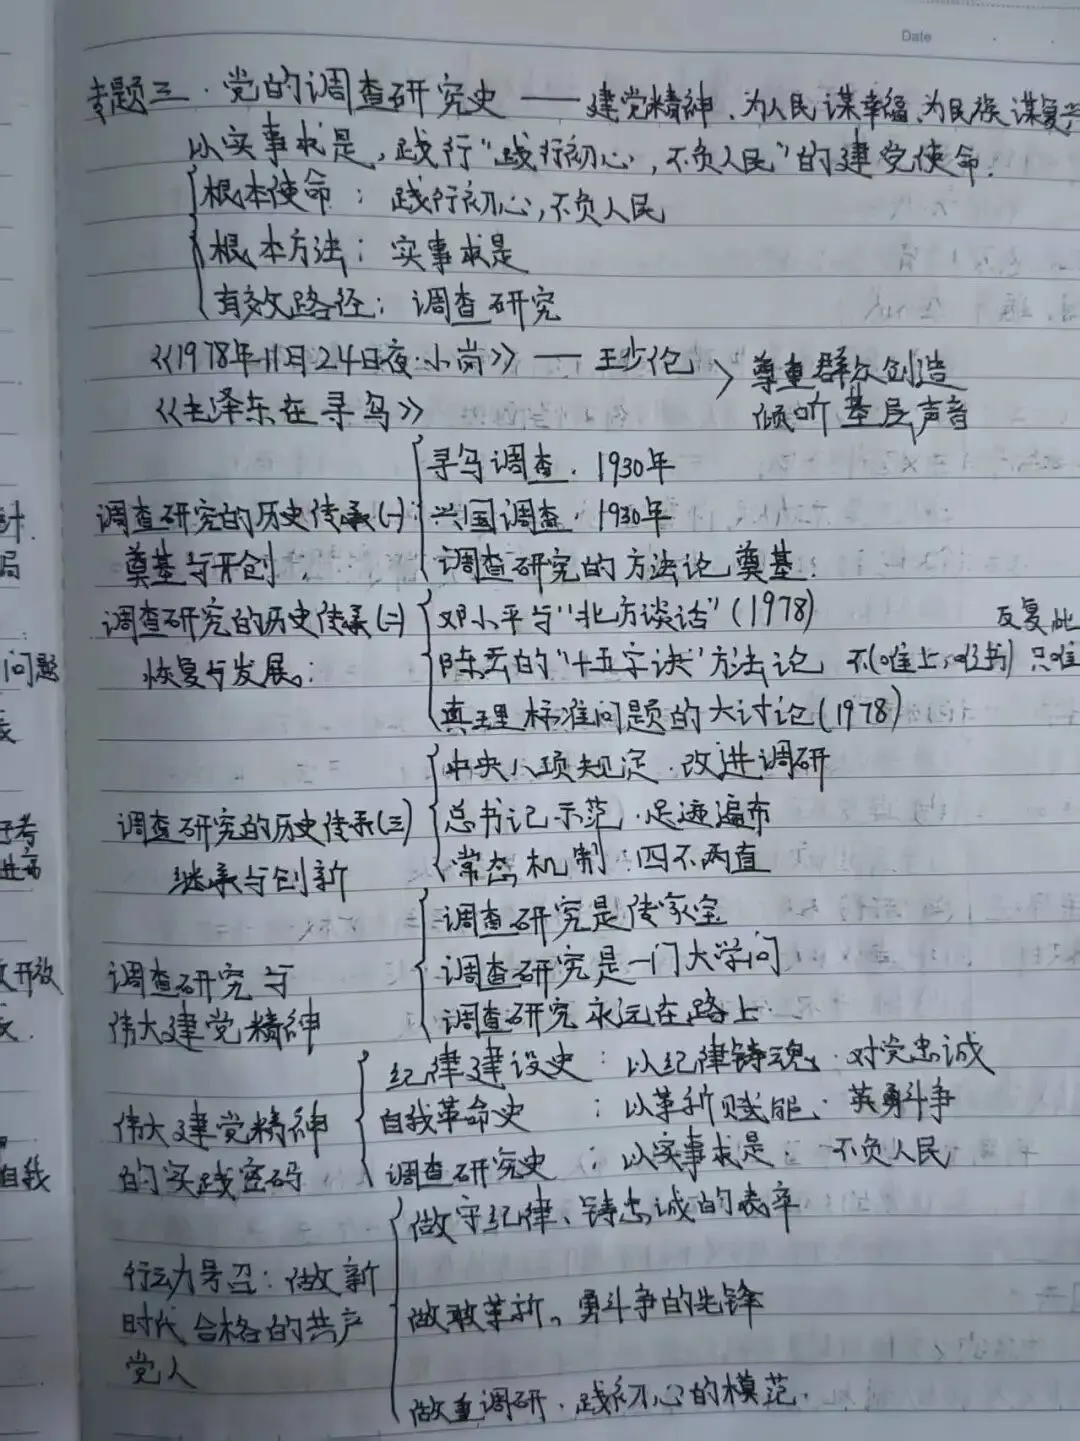 Date
专题三·党的调查研究史——建党精神、为人民谋幸福、为民族谋复兴
以实事求是,践行"践行初心,不负人民"的建党使命.
根本使命:践行初心,不负人民
根本方法:实事求是
有效路径:调查研究
《1978年11月24日夜·小岗》——王少伦
尊重群众创造
《毛泽东在寻乌》
倾听基层声音
寻乌调查.1930年
调查研究的历史传承(一)
兴国调查.1930年
奠基与开创.
调查研究的方法论奠基.
调查研究的历史传承(二)
邓小平与"北方谈话"(1978)
反复比
恢复与发展:
陈云的"十五字诀"方法论 不(唯上,唯书)只唯
真理标准问题的大讨论(1978)
中央八项规定.改进调研
调查研究的历史传承(三)
总书记示范.足迹遍布
继承与创新
常态机制:四不两直
调查研究是传家宝
调查研究与
调查研究是一门大学问
伟大建党精神
调查研究永远在路上
纪律建设史:以纪律铸魂.对党忠诚
伟大建党精神
自我革命史:以革新赋能.英勇斗争
的实践密码
调查研究史:以实事求是.不负人民
做守纪律、铸忠诚的表率
行动号召:做新
时代合格的共产
做敢革新、勇斗争的先锋
党人
做重调研.践初心的模范.
问题
开放
自我